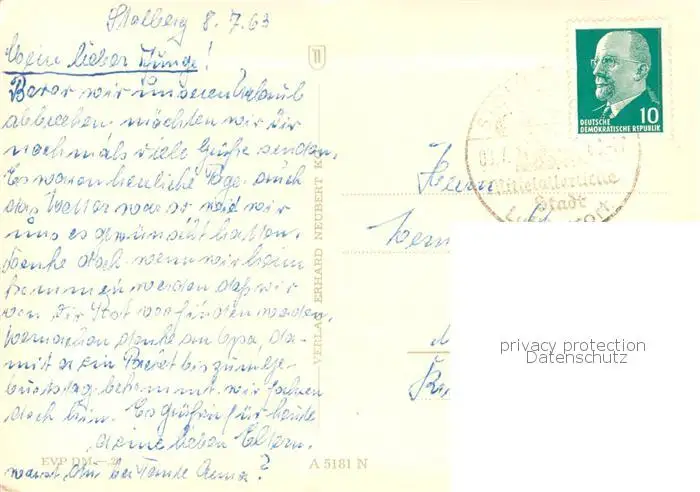 Stolberg 8.7.63
Mein lieber Junge!
Bevor wir unseren Urlaub
abbrechen möchten wir Dir
nochmals viele Grüße senden.
Es waren herrliche Tage auch
das Wetter war so wie wir
uns es gewünscht hatten.
Denke doch wenn wir heim
kommen werden daß wir
von Dir Post vorfinden werden.
denke an Opa, da-
mit er ein Paket bis zum Ge-
burtstag bekommt. wir fahren
doch heim. Es grüßen für heute
deine lieben Eltern.
warst Du bei Tante Anna?
EVP DM —.20
A 5181 N
VERLAG ERHARD NEUBERT K
Herrn
DEUTSCHE
DEMOKRATISCHE REPUBLIK
10
Mittelalterliche
Stadt
privacy protection
Datenschutz